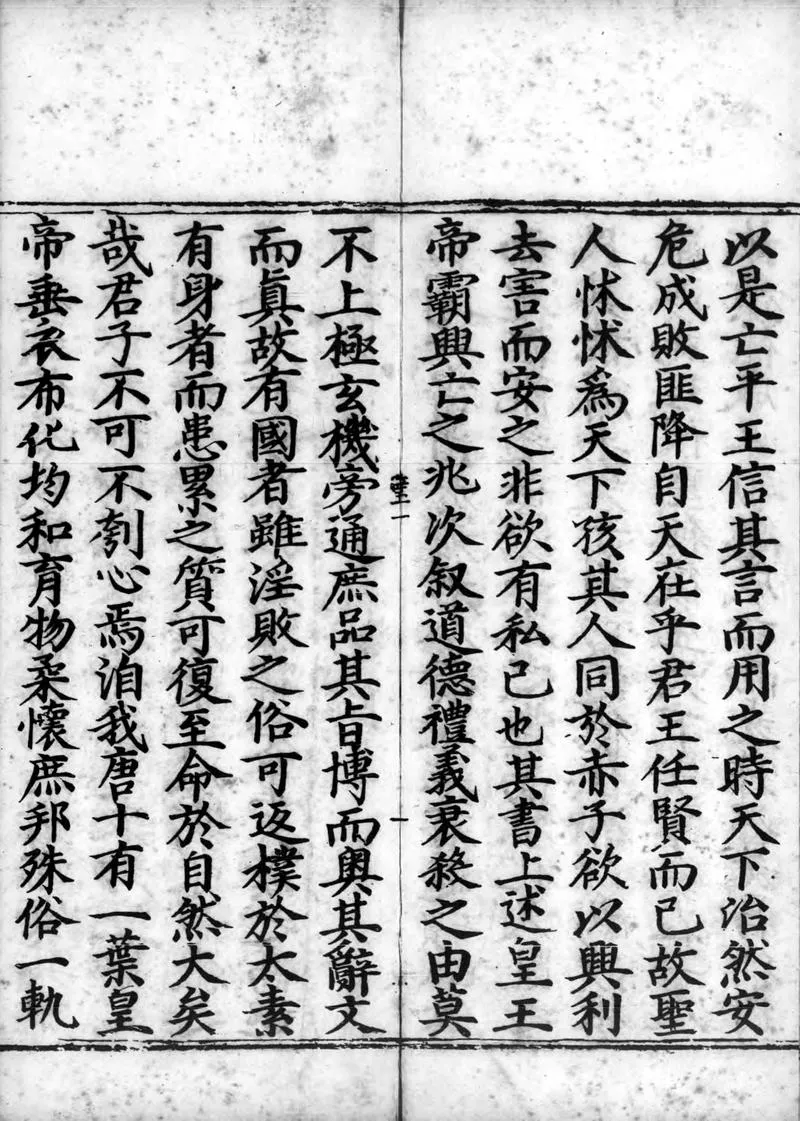 以是亡平王信其言而用之時天下治然安
危成敗匪降自天在乎君王任賢而已故聖
人怵怵爲天下孩其人同於赤子欲以興利
去害而安之非欲有私已也其書上述皇王
帝霸興亡之兆次叙道德禮義衰殺之由莫
不上極玄機旁通庶品其旨博而奧其辭文
而眞故有國者雖淫敗之俗可返樸於太素
有身者而患累之質可復至命於自然大矣
哉君子不可不刳心焉洎我唐十有一葉皇
帝垂衣布化均和育物柔懷庶邦殊俗一軌